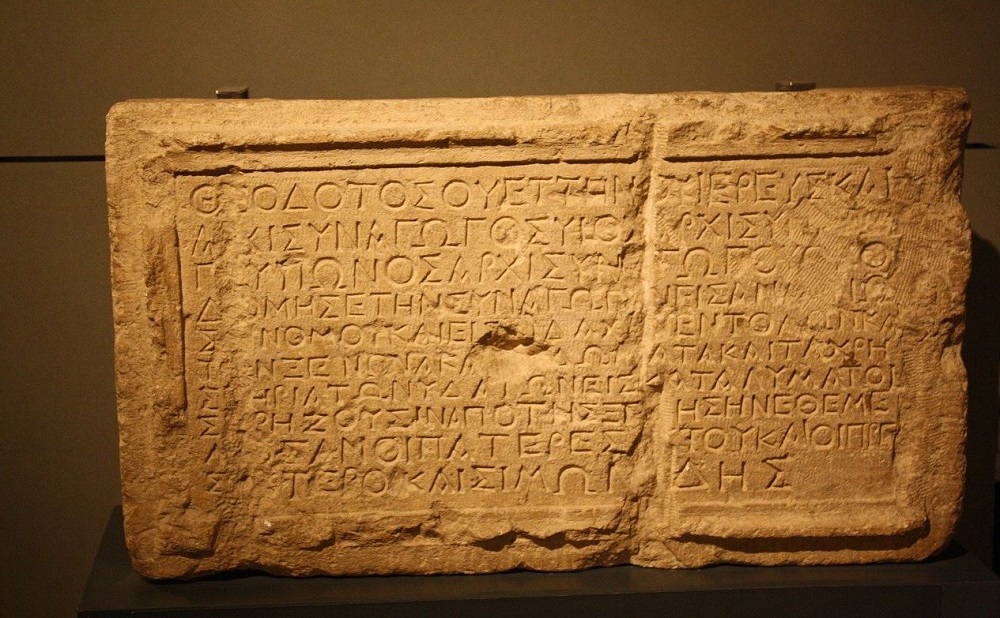 ΘΕΟΔΟΤΟΣ ΟΥΕΤΤΗΝΟΥ ΙΕΡΕΥΣ ΚΑΙ
ΑΡΧΙΣΥΝΑΓΩΓΟΣ ΥΙΟΣ ΑΡΧΙΣΥ
Γ ΥΥΙΩΝΟΣ ΑΡΧΙΣΥΝ ΓΩΓΟΥ
ΔΟΜΗΣΕ ΤΗΝ ΣΥΝΑΓΩΓΗΝ ΕΙΣ ΑΝ
ΝΟΜΟΥ ΚΑΙ ΕΙΣ ΔΑΧΗΝ ΕΝΤΟΛΩΝ ΚΑΙ
ΤΟΝ ΞΕΝΩΝΑ ΚΑ ΔΩΜΑΤΑ ΚΑΙ ΤΑ ΧΡΗ
ΣΤΗΡΙΑ ΤΩΝ ΥΔΑΤΩΝ ΕΙΣ ΚΑΤΑΛΥΜΑ ΤΟΙ
Σ ΧΡΗΖΟΥΣΙΝ ΑΠΟ ΤΗΣ ΞΕ ΗΣ ΗΝ ΕΘΕΜΕ
ΣΑΝ ΟΙ ΠΑΤΕΡΕΣ ΥΤΟΥ ΚΑΙ ΟΙ ΠΡΕ
Σ ΥΤΕΡΟΙ ΚΑΙ ΣΙΜΩΝΙΔΗΣ